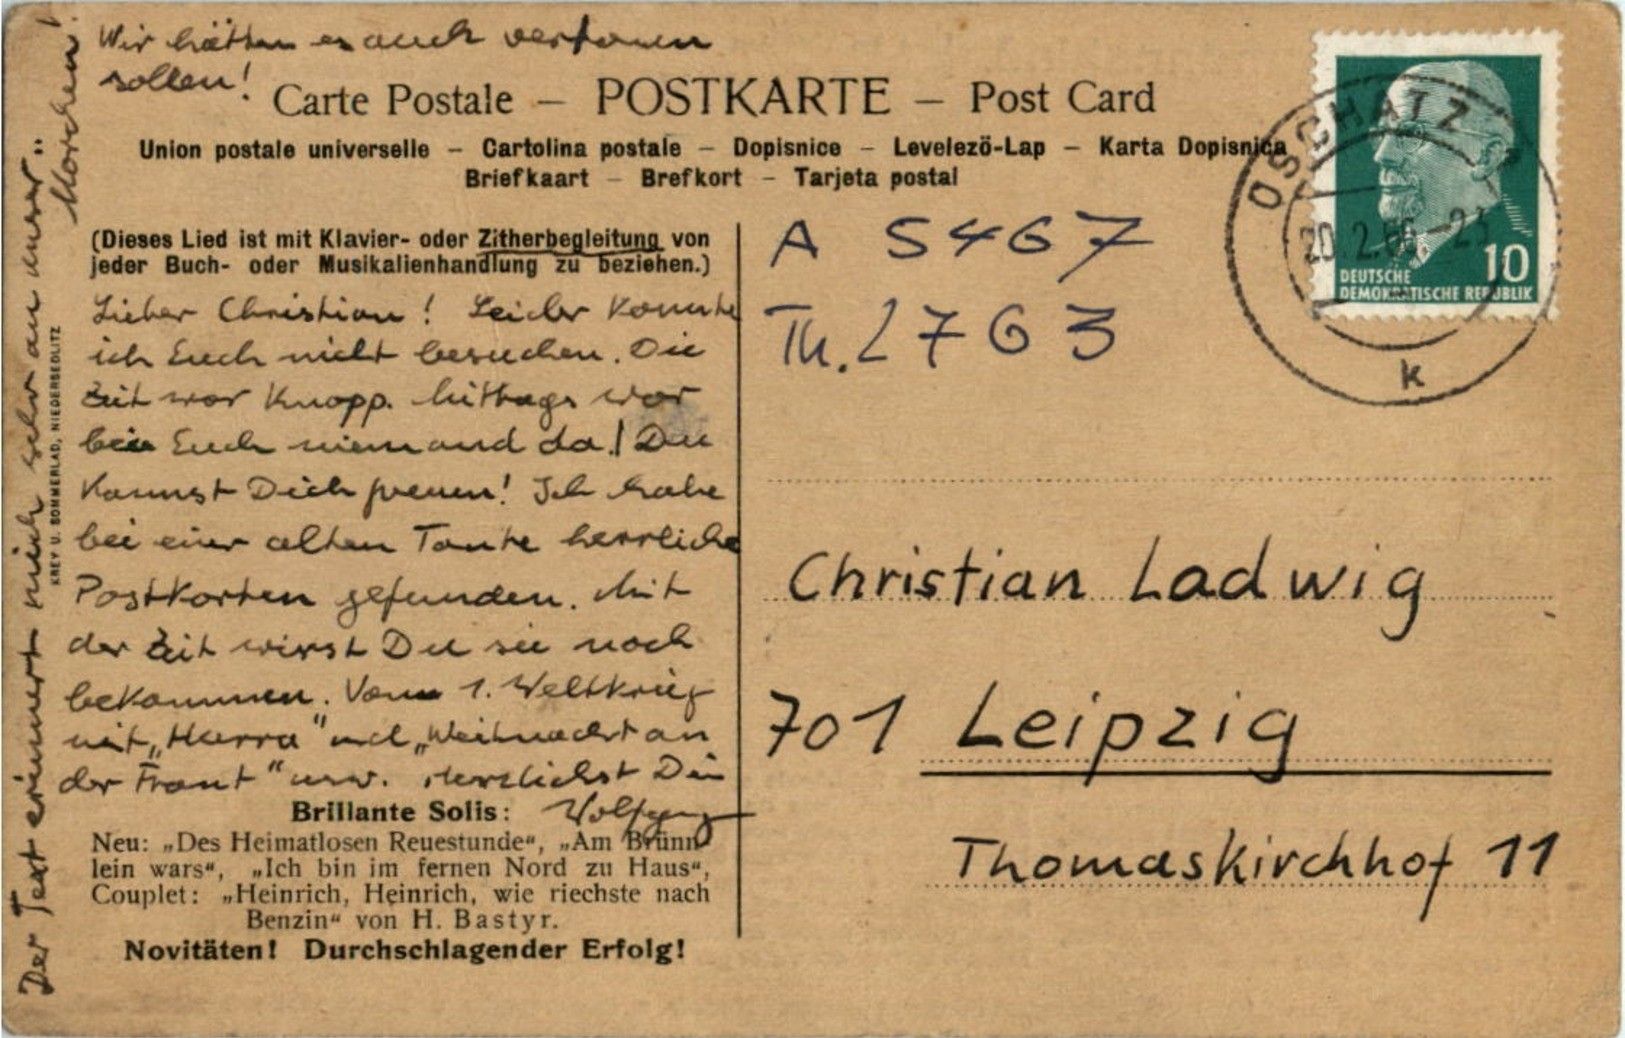 Wir hätten es auch vertonen
sollen!
Carte Postale – POSTKARTE – Post Card
Union postale universelle – Cartolina postale – Dopisnice – Levelezö-Lap – Karta Dopisnica
Briefkaart – Brefkort – Tarjeta postal
(Dieses Lied ist mit Klavier- oder Zitherbegleitung von
jeder Buch- oder Musikalienhandlung zu beziehen.)
Lieber Christian! Leider konnte
ich Euch nicht besuchen. Die
Zeit war knapp. Mittags war
bei Euch niemand da! Du
kannst Dich freuen! Ich habe
bei einer alten Tante herrliche
Postkarten gefunden. Mit
der Zeit wirst Du sie noch
bekommen. Vom 1. Weltkrieg
mit „Hurra" und „Weihnacht an
der Front" usw. Herzlichst Dein
Wolfgang
Brillante Solis:
Neu: „Des Heimatlosen Reuestunde“, „Am Brünn-
lein wars“, „Ich bin im fernen Nord zu Haus“,
Couplet: „Heinrich, Heinrich, wie riechste nach
Benzin“ von H. Bastyr.
Novitäten! Durchschlagender Erfolg!
Der Text erinnert mich sehr an unser "
Märchen!
KREY U. SOMMERLAD, NIEDERSEDLITZ
A 5467
Th. L 763
OSCHATZ
20.2.66-23
k
10
DEUTSCHE
DEMOKRATISCHE REPUBLIK
Christian Ladwig
701 Leipzig
Thomaskirchhof 11